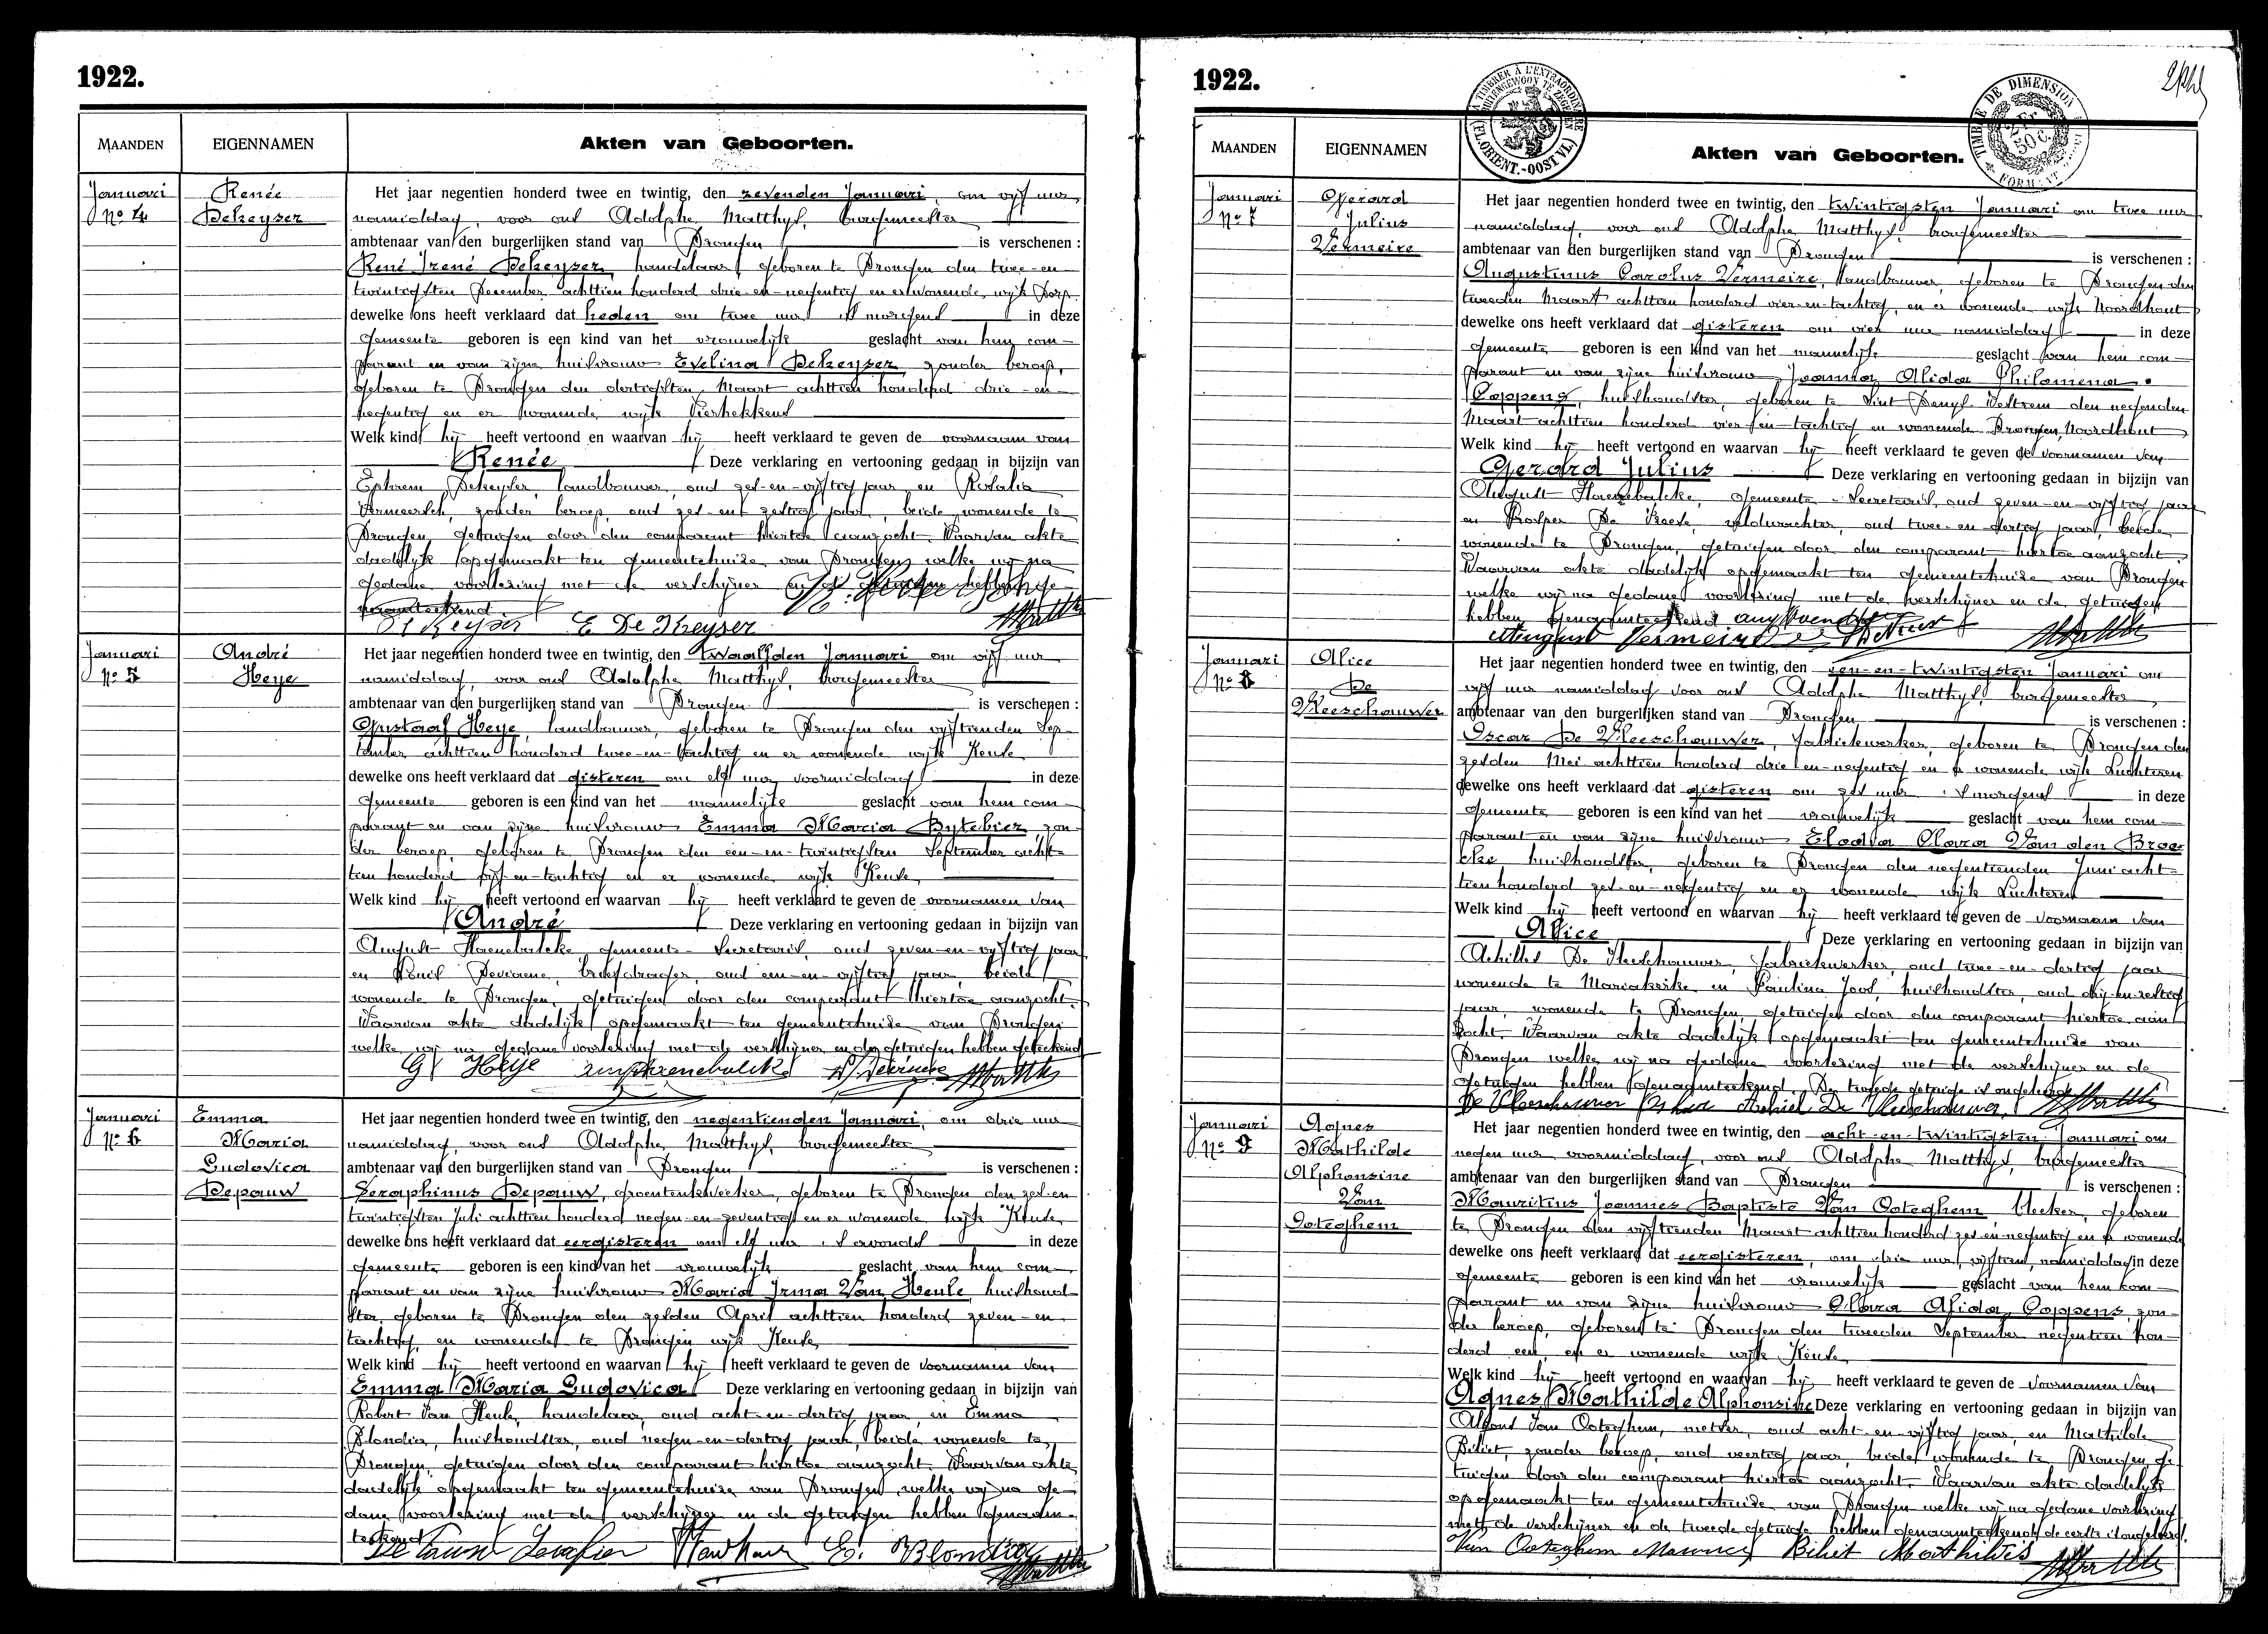 1922.
MAANDEN
EIGENNAMEN
Akten van Geboorten.
Januari
Nº 4
Renée
Dekeyser
Het jaar negentien honderd twee en twintig, den zevenden Januari, om vijf uur
namiddag, voor ons Adolphe Matthys, burgemeester
ambtenaar van den burgerlijken stand van Drongen is verschenen :
René Irené Dekeyser, handelaar, geboren te Drongen den twee-en-
twintigsten December achttien honderd drie-en-negentig en er wonende, wijk Dorp
dewelke ons heeft verklaard dat heden om twee uur 's morgens in deze
gemeente geboren is een kind van het vrouwelijk geslacht van hem com-
parant en van zijne huisvrouw Evelina Dekeyser zonder beroep,
geboren te Drongen den dertigsten Maart achttien honderd drie-en-
negentig en er wonende wijk Vierhekkens
Welk kind hij heeft vertoond en waarvan hij heeft verklaard te geven de voornaam van
Renée Deze verklaring en vertooning gedaan in bijzijn van
Ephrem Dekeyser, landbouwer, oud zes-en-vijftig jaar, en Rosalia
Vermeersch, zonder beroep, oud zes-en-zestig jaar, beide wonende te
Drongen, getuigen door den comparant hiertoe aanzocht. Waarvan akte
dadelijk opgemaakt ten gemeentehuize van Drongen, welke wij na
gedane voorlezing met de verschijner en de getuigen hebben ge-
naamteekend.
De Keyser E De Keyser
Januari
Nº 5
André
Heye
Het jaar negentien honderd twee en twintig, den twaalfden Januari om vijf uur
namiddag, voor ons Adolphe Matthys, burgemeester
ambtenaar van den burgerlijken stand van Drongen is verschenen :
Gustaaf Heye, landbouwer, geboren te Drongen den vijftienden Sep-
tember achttien honderd twee-en-tachtig en er wonende wijk Keuze
dewelke ons heeft verklaard dat gisteren om elf uur voormiddag in deze
gemeente geboren is een kind van het mannelijk geslacht van hem com-
parant en van zijne huisvrouw Emma Maria Bytebier, zon-
der beroep, geboren te Drongen den een-en-twintigsten September acht-
tien honderd vijf-en-tachtig en er wonende wijk Keuze
Welk kind hij heeft vertoond en waarvan hij heeft verklaard te geven de voornamen van
André Deze verklaring en vertooning gedaan in bijzijn van
August Haenebalcke gemeente-secretaris, oud zeven-en-vijftig jaar
en Louis Deviaene, briefdrager, oud een-en-vijftig jaar, beide
wonende te Drongen, getuigen door den comparant hiertoe aanzocht.
Waarvan akte dadelijk opgemaakt ten gemeentehuize van Drongen
welke wij na gedane voorlezing met de verschijner en de getuigen hebben geteekend
G Heye
Januari
Nº 6
Emma
Maria
Ludovica
Depauw
Het jaar negentien honderd twee en twintig, den negentienden Januari, om drie uur
namiddag, voor ons Adolphe Matthys, burgemeester
ambtenaar van den burgerlijken stand van Drongen is verschenen :
Seraphinus Depauw, groentenkweeker, geboren te Drongen den zes-en-
twintigsten Juli achttien honderd negen-en-zeventig en er wonende wijk Keuze
dewelke ons heeft verklaard dat eergisteren om elf uur 's avonds in deze
gemeente geboren is een kind van het vrouwelijk geslacht van hem com-
parant en van zijne huisvrouw Maria Irma Van Heule, huishoud-
ster, geboren te Drongen den zesden April achttien honderd zeven-en-
tachtig, en wonende te Drongen wijk Keuze
Welk kind hij heeft vertoond en waarvan hij heeft verklaard te geven de voornamen van
Emma Maria Ludovica Deze verklaring en vertooning gedaan in bijzijn van
Robert Van Heule, handelaar, oud acht-en-dertig jaar, en Emma
Blondia, huishoudster, oud negen-en-dertig jaar, beide wonende te
Drongen, getuigen door den comparant hiertoe aanzocht. Waarvan akte
dadelijk opgemaakt ten gemeentehuize van Drongen, welke wij na ge-
dane voorlezing met de verschijner en de getuigen hebben genaam-
teekend.
1922.
A TIMBRER À L'EXTRAORDINAIRE
(FL. ORIENT.-OOST VL.)
TIMBRE DE DIMENSION
2 Fr.
50 c.
FORMAT
MAANDEN
EIGENNAMEN
Akten van Geboorten.
Januari
Nº 7
Gerard
Julius
Vermeire
Het jaar negentien honderd twee en twintig, den twintigsten Januari om twee uur
namiddag, voor ons Adolphe Matthys, burgemeester
ambtenaar van den burgerlijken stand van Drongen is verschenen :
Augustinus Carolus Vermeire, landbouwer, geboren te Drongen den
tweeden Maart achttien honderd vier-en-tachtig, en er wonende wijk Noordhout
dewelke ons heeft verklaard dat gisteren om vier uur namiddag in deze
gemeente geboren is een kind van het mannelijk geslacht van hem com-
parant en van zijne huisvrouw Joanna Alida Philomena
Coppens, huishoudster, geboren te Sint Denys Westrem den negenden
Maart achttien honderd vier-en-tachtig en wonende Drongen, Noordhout
Welk kind hij heeft vertoond en waarvan hij heeft verklaard te geven de voornamen van
Gerard Julius Deze verklaring en vertooning gedaan in bijzijn van
August Haenebalcke, gemeente-secretaris, oud zeven-en-vijftig jaar
en Prosper De Reese, veldwachter, oud twee-en-dertig jaar, beide
wonende te Drongen, getuigen door den comparant hiertoe aanzocht
Waarvan akte dadelijk opgemaakt ten gemeentehuize van Drongen
welke wij na gedane voorlezing met de verschijner en de getuigen
hebben genaamteekend
August Vermeire
Januari
Nº 8
Alice
De
Vleeschauwer
Het jaar negentien honderd twee en twintig, den een-en-twintigsten Januari om
vijf uur namiddag voor ons Adolphe Matthys, burgemeester
ambtenaar van den burgerlijken stand van Drongen is verschenen :
Oscar De Vleeschauwer, fabriekwerker, geboren te Drongen den
zesden Mei achttien honderd drie-en-negentig en er wonende wijk Luchteren
dewelke ons heeft verklaard dat gisteren om zes uur 's morgens in deze
gemeente geboren is een kind van het vrouwelijk geslacht van hem com-
parant en van zijne huisvrouw Elodia Clara Van den Broe-
cke huishoudster, geboren te Drongen den negentienden Juni acht-
tien honderd zes-en-negentig en er wonende wijk Luchteren
Welk kind hij heeft vertoond en waarvan hij heeft verklaard te geven de voornaam van
Alice Deze verklaring en vertooning gedaan in bijzijn van
Achilles De Vleeschauwer, fabriekwerker, oud twee-en-dertig jaar
wonende te Mariakerke en Paulina Joos, huishoudster, oud drij-en-zestig
jaar, wonende te Drongen, getuigen door den comparant hiertoe aan-
zocht. Waarvan akte dadelijk opgemaakt ten gemeentehuize van
Drongen welke wij na gedane voorlezing met de verschijner en de
getuigen hebben genaamteekend. De tweede getuige is ongeleerd
De Vleeschauwer Oskar Achiel De Vleeschauwer
Januari
Nº 9
Agnes
Mathilde
Alphonsine
Van
Ooteghem
Het jaar negentien honderd twee en twintig, den acht-en-twintigsten Januari om
negen uur voormiddag, voor ons Adolphe Matthys, burgemeester
ambtenaar van den burgerlijken stand van Drongen is verschenen :
Mauritius Joannes Baptiste Van Ooteghem, bleeker, geboren
te Drongen den vijftienden Maart achttien honderd zes-en-negentig en er wonende
dewelke ons heeft verklaard dat eergisteren, om drie uur, vijftien, namiddag in deze
gemeente geboren is een kind van het vrouwelijk geslacht van hem com-
parant en van zijne huisvrouw Clara Alida Coppens, zon-
der beroep, geboren te Drongen den tweeden September negentien hon-
derd een, en er wonende wijk Keuze
Welk kind hij heeft vertoond en waarvan hij heeft verklaard te geven de voornamen van
Agnes Mathilde Alphonsine Deze verklaring en vertooning gedaan in bijzijn van
Alfons Van Ooteghem, metser, oud acht-en-vijftig jaar, en Mathilde
Biliet, zonder beroep, oud veertig jaar, beide wonende te Drongen, ge-
tuigen door den comparant hiertoe aanzocht. Waarvan akte dadelijk
opgemaakt ten gemeentehuize van Drongen welke wij na gedane voorlezing
met de verschijner en de tweede getuige hebben genaamteekend, de eerste is ongeleerd.
Van Ooteghem Maurice Biliet Mathildis